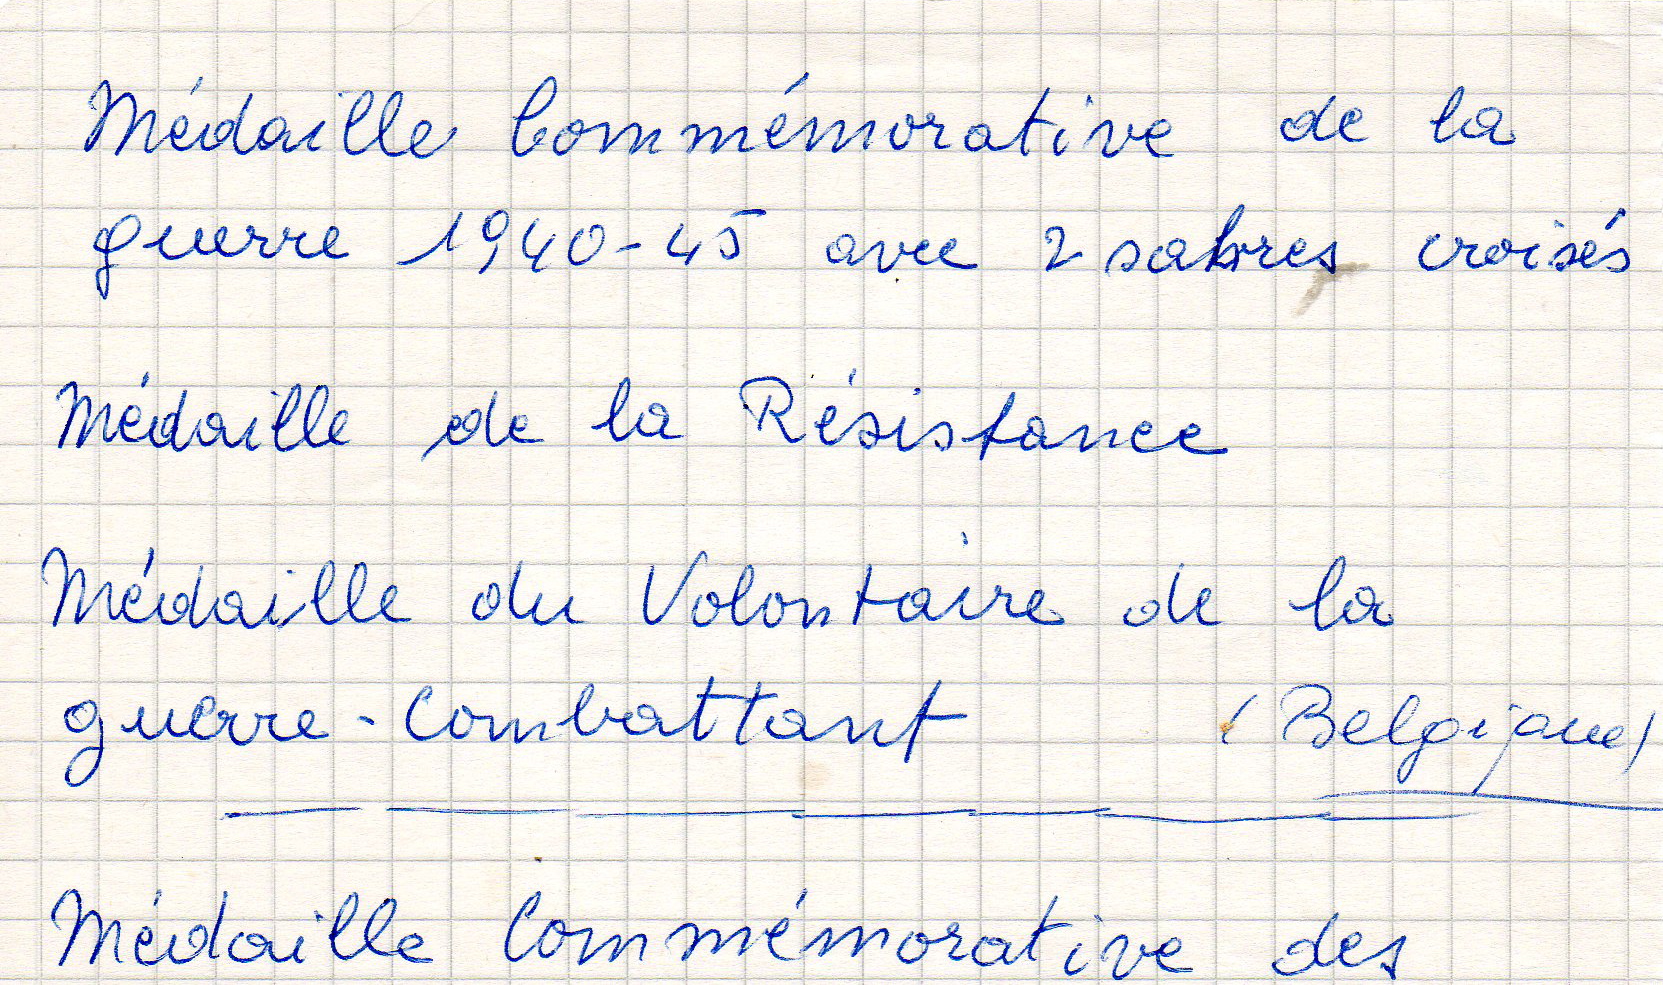 Médaille Commémorative de la
guerre 1940-45 avec 2 sabres croisés
Médaille de la Résistance
Médaille du Volontaire de la
guerre-Combattant (Belgique)
Médaille Commémorative des